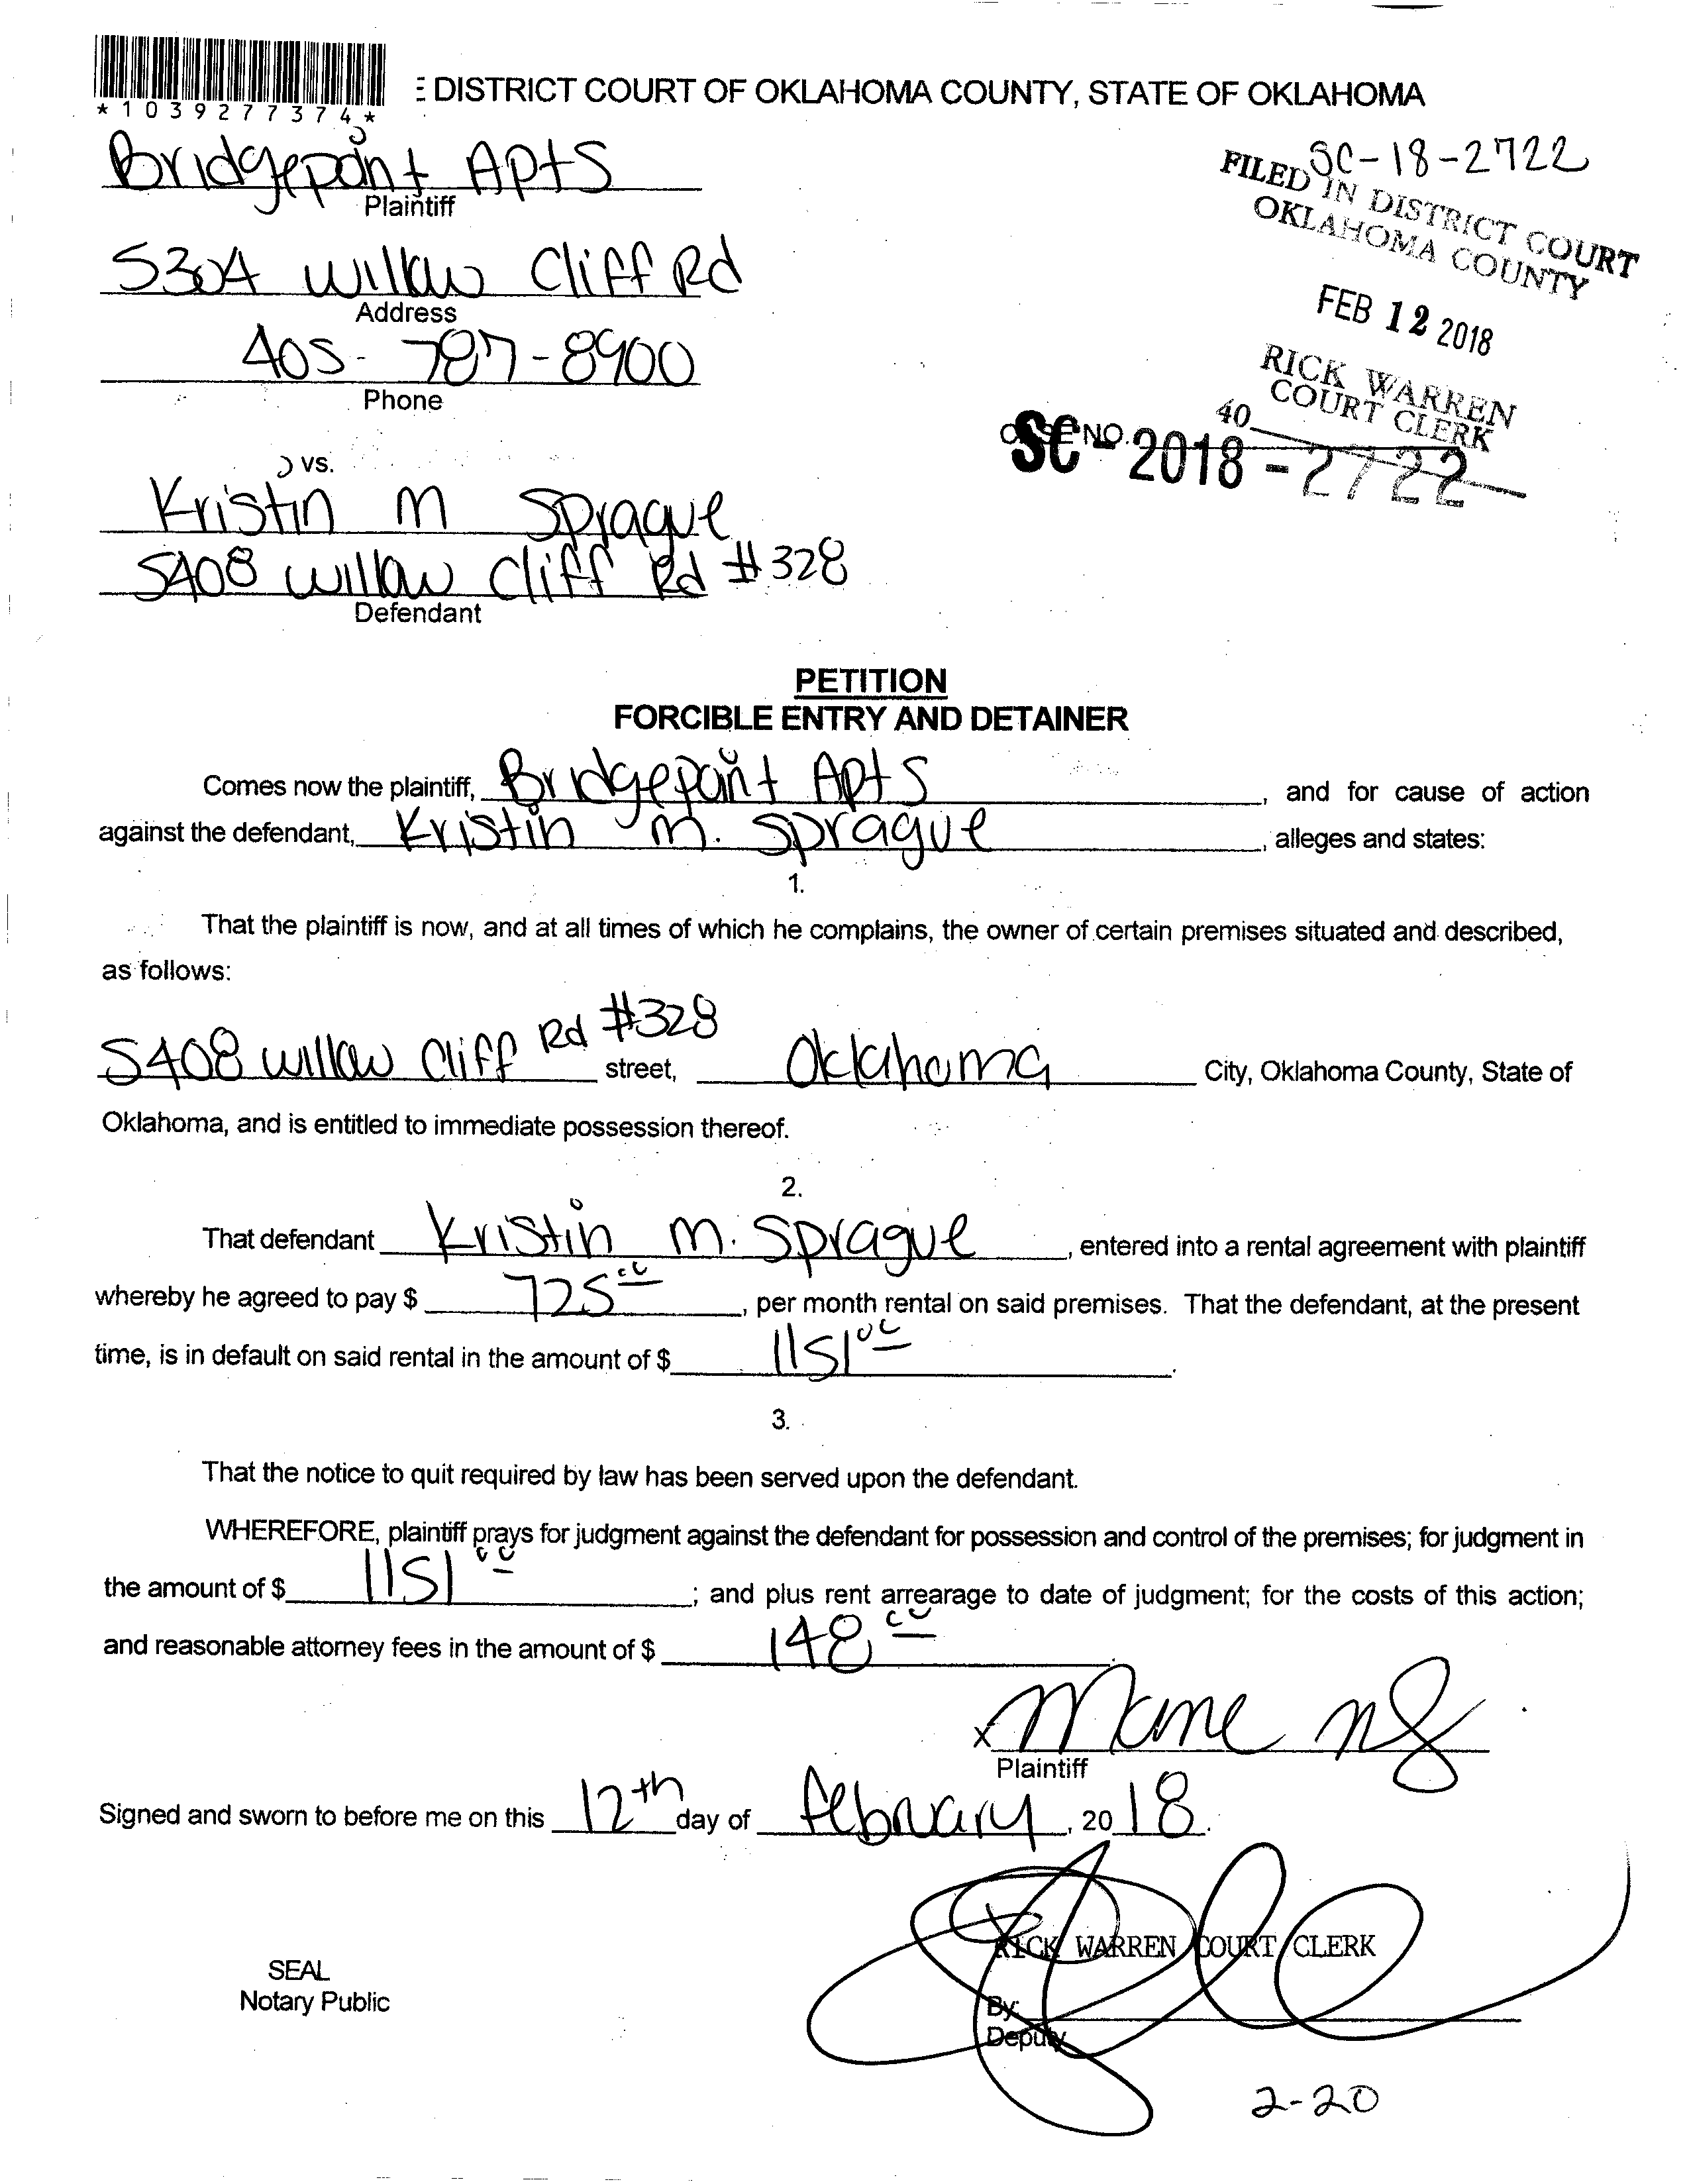 *1039277374*
E DISTRICT COURT OF OKLAHOMA COUNTY, STATE OF OKLAHOMA
Bridgepoint Apts
Plaintiff
SC-18-2722
FILED IN DISTRICT COURT
OKLAHOMA COUNTY
5304 Willow Cliff Rd
Address
FEB 12 2018
405-787-8900
Phone
RICK WARREN
COURT CLERK
40
CASE NO.
SC-2018-2722
vs.
Kristin M Sprague
5408 Willow Cliff Rd #328
Defendant
PETITION
FORCIBLE ENTRY AND DETAINER
Comes now the plaintiff, Bridgepoint Apts, and for cause of action
against the defendant, Kristin M. Sprague, alleges and states:
1.
That the plaintiff is now, and at all times of which he complains, the owner of certain premises situated and described,
as follows:
5408 Willow Cliff Rd #328 street, Oklahoma City, Oklahoma County, State of
Oklahoma, and is entitled to immediate possession thereof.
2.
That defendant Kristin M. Sprague, entered into a rental agreement with plaintiff
whereby he agreed to pay $ 725.00, per month rental on said premises. That the defendant, at the present
time, is in default on said rental in the amount of $ 1151.00.
3.
That the notice to quit required by law has been served upon the defendant.
WHEREFORE, plaintiff prays for judgment against the defendant for possession and control of the premises; for judgment in
the amount of $ 1151.00; and plus rent arrearage to date of judgment; for the costs of this action;
and reasonable attorney fees in the amount of $ 148.00.
X
Plaintiff
Signed and sworn to before me on this 12th day of February, 2018.
RICK WARREN COURT CLERK
SEAL
Notary Public
By:
Deputy
2-20